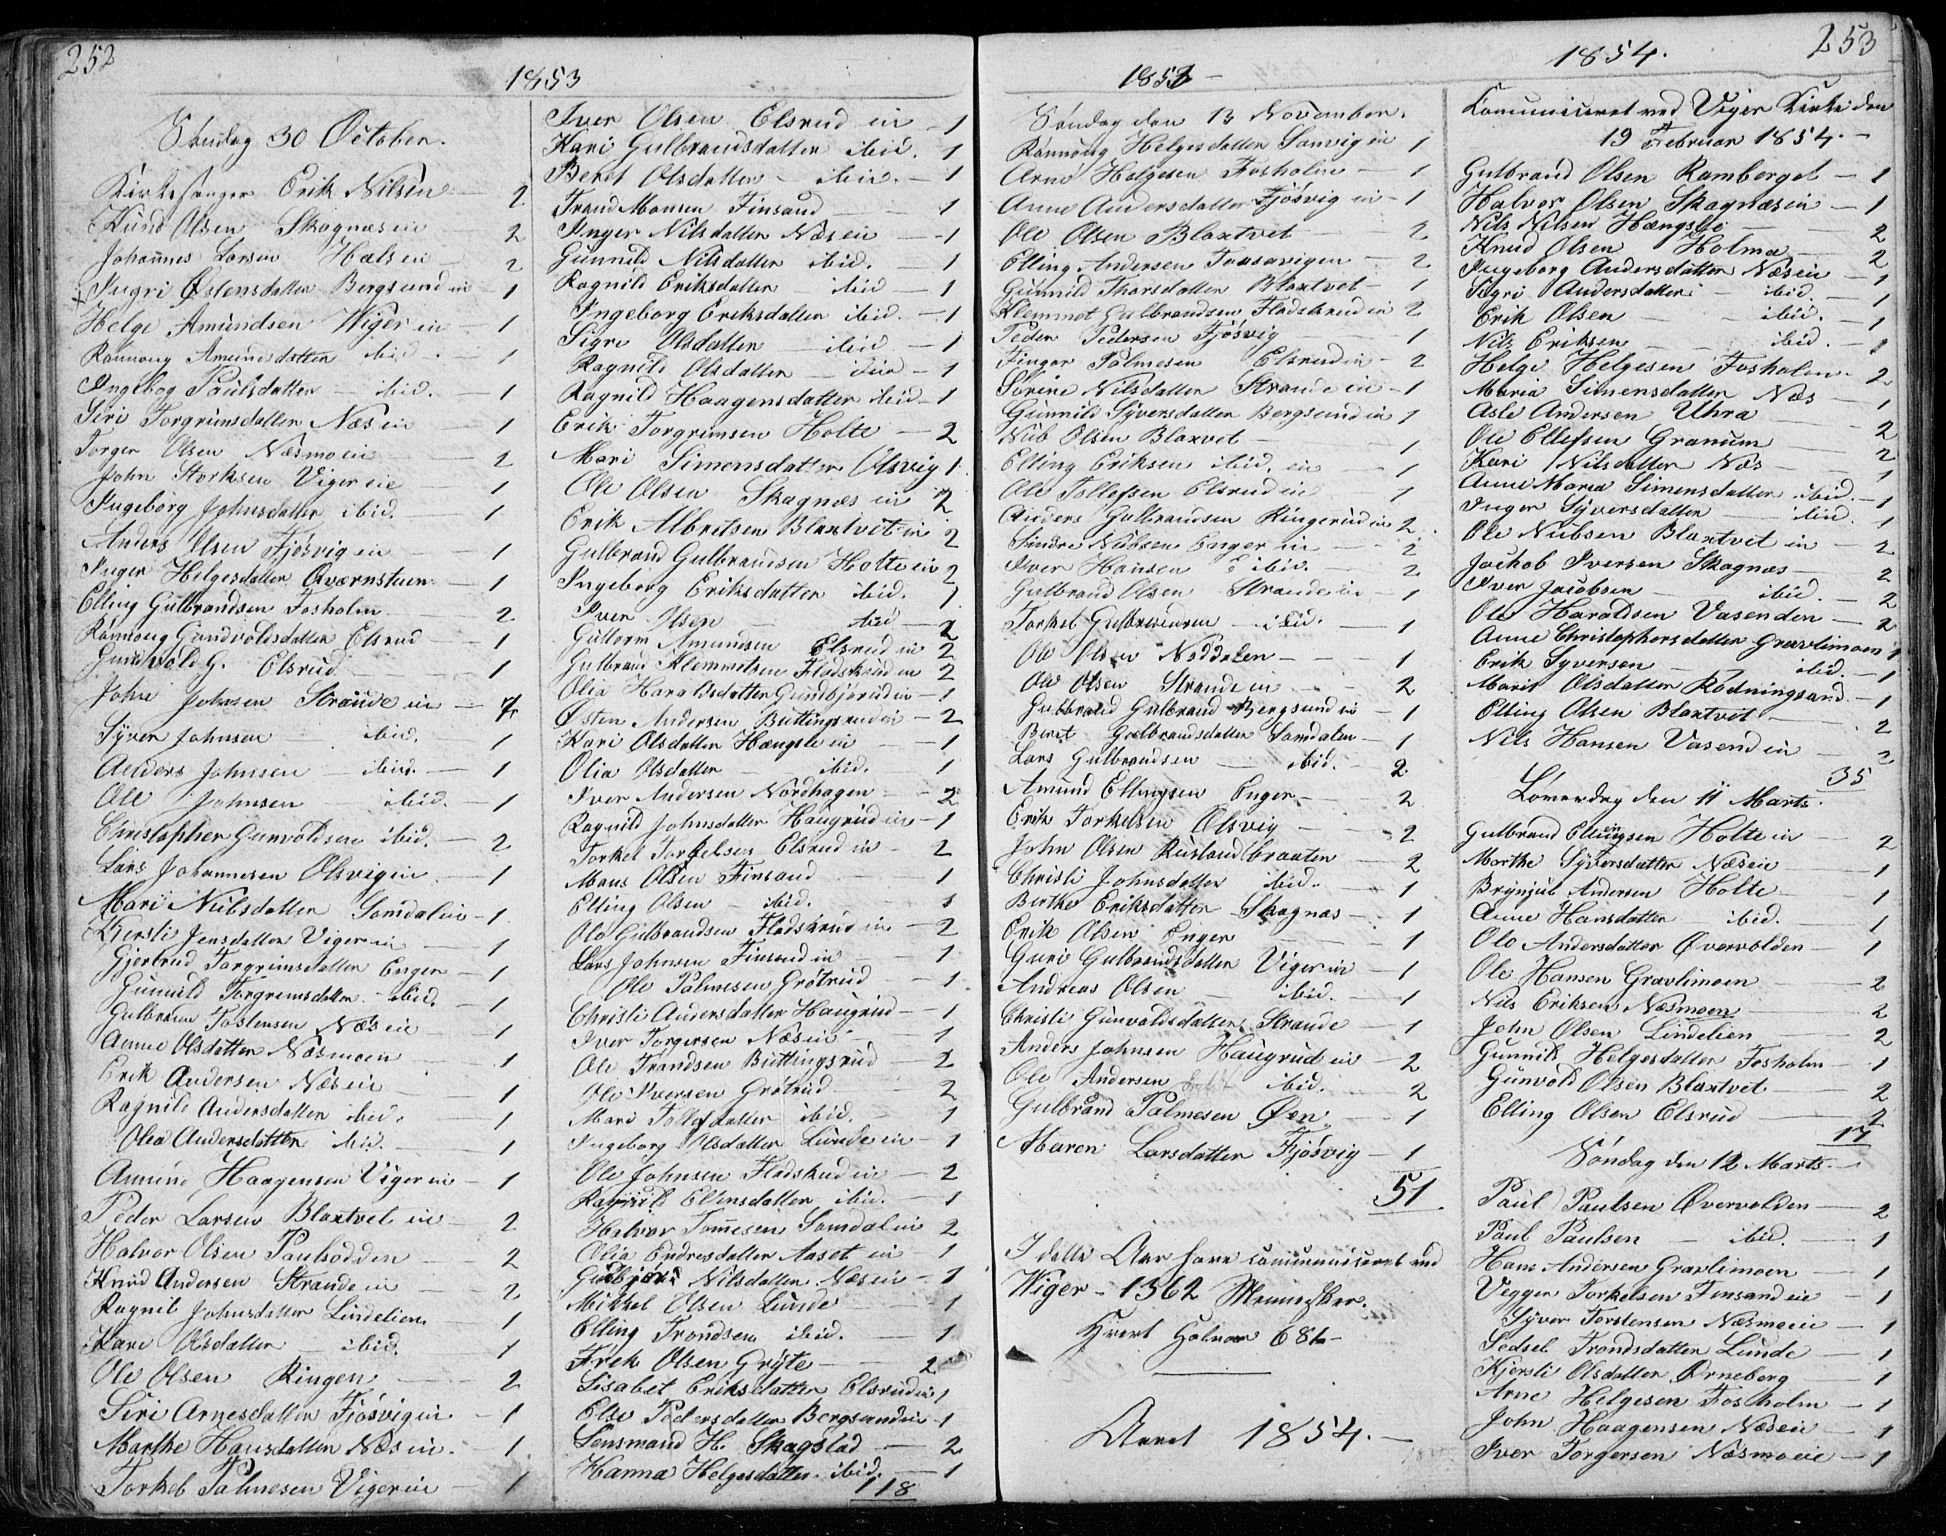 252
1853
Søndag 30 October.
Kirkesanger Erik Nilsen 2
Knud Olsen Skagnæseie 2
Johannes Larsen Hælseie 2
+ Ingri Østensdatter Bergsund ie 1
Helge Amundsen Wiger ie 1
Rønnoug Amundsdatter ibid. 1
Ingebog Paulsdatter ibid. 1
Siri Torgrimsdatter Næs ie 1
Torger Olsen Næsmoeie 2
John Storksen Viger eie 1
Ingeborg Johnsdatter ibid. 1
Anders Olsen Fjøsvig ie 1
Inger Helgesdatter Qværnstuen 1
Elling Gulbrandsen Fosholm 2
Rønnoug Gundvoldsdatter Elsrud 1
Gundvold G. Elsrud 1
John Johnsen Strande ie 1
Syver Johnsen ibid. 1
Anders Johnsen ibid. 1
Ole Johnsen ibid. 1
Christopher Gunvoldsen ibid. 2
Lars Johannesen Olsvigie 1
Mari Nubsdatter Somdalie 1
Kjersti Jensdatter Viger ie 1
Gjertrud Torgrimsdatter Enger 1
Gunnild Torgrimsdatter ibid. 1
Gulbran Tostensen Næs ie 1
Anne Olsdatter Næsmoen 1
Erik Andersen Næs ie 1
Ragnild Andersdatter ibid. 1
Olea Andersdatter ibid. 1
Amund Haagensen Viger ie 1
Peder Larsen Blaxtvet ie 2
Halvor Olsen Paulsødden 2
Knud Andersen Strande ie 2
Ragnil Johnsdatter Lindelien 1
Kari Olsdatter ibid. 1
Ole Olsen Ringen 2
Siri Arnesdatter Fjøsvigie 1
Marthe Hansdatter Næs ie. 1
Torkel Palmesen Viger ie 1
Iver Olsen Elsrud ie 1
Kari Gulbrandsdatter ibid. 1
Beret Olsdatter ibid. 1
Trond Monsen Finsand 1
Inger Nilsdatter Næs ie 1
Gunnild Nilsdatter ibid. 1
Ragnild Eriksdatter ibid 1
Ingeborg Eriksdatter ibid. 1
Sigri Olsdatter ibid 1
Ragnild Olsdatter ibid 1
Ragnild Haagensdatter ibid 1
Erik Torgrimsen Holte 2
Mari Simensdatter Olsvig 1
Ole Olsen Skagnæs ie 2
Erik Albretsen Blaxtvet ie 2
Gulbrand Gulbrandsen Holte ie 2
Ingeborg Eriksdatter ibid. 1
Iver Olsen ibid 2
Guttorm Amundsen Elsrud ie 2
Gulbrand Klemmetsen Fladskrud ie 2
Olia Haraldsdatter Gundbjørud ie 1
Østen Andersen Buttingsrud ie 2
Kari Olsdatter Hængsle ie 1
Olia Olsdatter ibid. 1
Iver Andersen Nordhagen 2
Ragnild Johnsdatter Haugrud ie 1
Torkel Torkelsen Elsrud ie 2
Mons Olsen Finsand 1
Elling Olsen ibid. 1
Ole Gulbrandsen Fladskrud ie 2
Lars Johnsen Finsand ie 1
Ole Palmesen Grøtrud 1
Christi Andersdatter Haugrud 1
Iver Torgersen Næs ie 1
Ole Trondsen Buttingsrud 2
Ole Iversen Grøtrud 2
Mari Tollefsdatter ibid. 1
Ingeborg Olsdatter Lunde ie 1
Ole Johnsen Fladskrud ie 2
Ragnild Ellensdatter ibid. 1
Halvor Tomesen Somdal ie 2
Olia Endresdatter Aaset ie 1
Gubjør Nilsdatter Næs ie 1
Mikkel Olsen Lunde 1
Elling Trondsen ibid. 1
Frek Olsen Gryte 2
Lisabet Eriksdatter Elsrud ie 1
Else Pedersdatter Bergsund ie 1
Lensmand H. Skagstad 2
Hanna Helgesdatter ibid. 1
118
253
1853
Søndag den 13 November.
Rønnoug Helgesdatter Sonvig ie 1
Arne Helgesen Fosholm 1
Anne Andersdatter Fjøsvig ie 1
Ole Olsen Blaxtvet 2
Elling Andersen Træsavigen 2
Gunnild Thorsdatter Blaxtvet 1
Klemmet Gulbrandsen Fladskrud ie 2
Peder Pedersen Fjøsvig 1
Fingar Palmesen Elsrud ie 2
Sørine Nilsdatter Strande ie 1
Gunnild Syversdatter Bergsund ie 1
Nub Olsen Blaxvet 1
Elling Eriksen ibid. ie 1
Ole Tollefsen Elsrud ie 1
Anders Gulbrandsen Ringerud ie 2
Sindre Nubsen Enger ie 2
Iver Hansen ibid. 2
Gulbrand Olsen Strande ie 1
Torkel Gulbrandsen ibid. 1
Ole Olsen Noddalen 1
Ole Olsen Strande ie 2
Gulbrand Gulbrand Bergsund ie 1
Beret Gulbrandsdatter Somdalen 1
Lars Gulbrandsen ibid. 2
Amund Ellingsen Enger 2
Erik Torkelsen Olsvig 2
John Olsen Ruslandbraaten 2
Christi Johnsdatter ibid. 1
Berthe Eriksdatter Skagnæs 1
Erik Olsen Enger 1
Guri Gulbrandsdatter Viger ie 1
Andreas Olsen ibid. 1
Christi Gunvoldsdatter Strande 1
Anders Johnsen Haugrud ie 2
Ole Andersen ibid. 2
Gulbrand Palmesen Øen 1
Maren Larsdatter Fjøsvig 1
51
I dette Aar have communiceret ved
Wiger – 1362 Mennesker.
Hvert Halvaar 681
Aaret 1854.
1854.
Communiceret ved Viger Kirke den
19 Februar 1854.
Gulbrand Olsen Ramberget 1
Halvor Olsen Skagnæs ie 1
Nils Nilsen Hængsle 2
Knud Olsen Holma 2
Ingeborg Andersdatter Næs ie 1
Sigri Andersdatter ibid. 1
Erik Olsen ibid. 1
Nils Eriksen ibid. 1
Helge Helgesen Fosholm 2
Maria Simensdatter Næs 1
Asle Andersen Uhra 2
Ole Ellefsen Granum 2
Kari Nilsdatter Næs 1
Anne Maria Simensdatter ibid. 1
Inger Syversdatter ibid. 1
Ole Nubsen Blaxtvet ie 2
Jachob Iversen Skagnæs 2
Iver Jacobsen ibid. 2
Ole Haraldsen Vasenden 2
Anne Christophersdatter Gravlimoen 1
Erik Syversen ibid. 1
Marit Olsdatter Rødningsand 1
Elling Olsen Blaxtvet 2
Nils Hansen Vasend ie 2
35
Løverdag den 11 Marts.
Gulbrand Ellingsen Holte ie 2
Marthe Syversdatter Næs ie 1
Brynjul Andersen Holte 1
Anne Hansdatter ibid. 1
Ole Andersdatter Øvervolden 1
Ole Hansen Gravlimoen 2
Nils Eriksen Næsmoen 2
John Olsen Lindelien 2
Gunnil Helgesdatter Fosholm 1
Gunvold Olsen Blaxtvet 2
Elling Olsen Elsrud 2
17
Søndag den 12 Marts.
Paul Paulsen Øvervolden 2
Paul Paulsen ibid. 1
Hans Andersen Gravlimoen 1
Vegger Torkelsen Finsand ie 1
Syver Torstensen Næsmoeie 1
Sedsel Trondsdatter Lunde 1
Kjersti Olsdatter Ørneberg 1
Arne Helgesen Fosholm 1
John Haagensen Næs ie 1
Iver Torgersen Næsmoeie 1